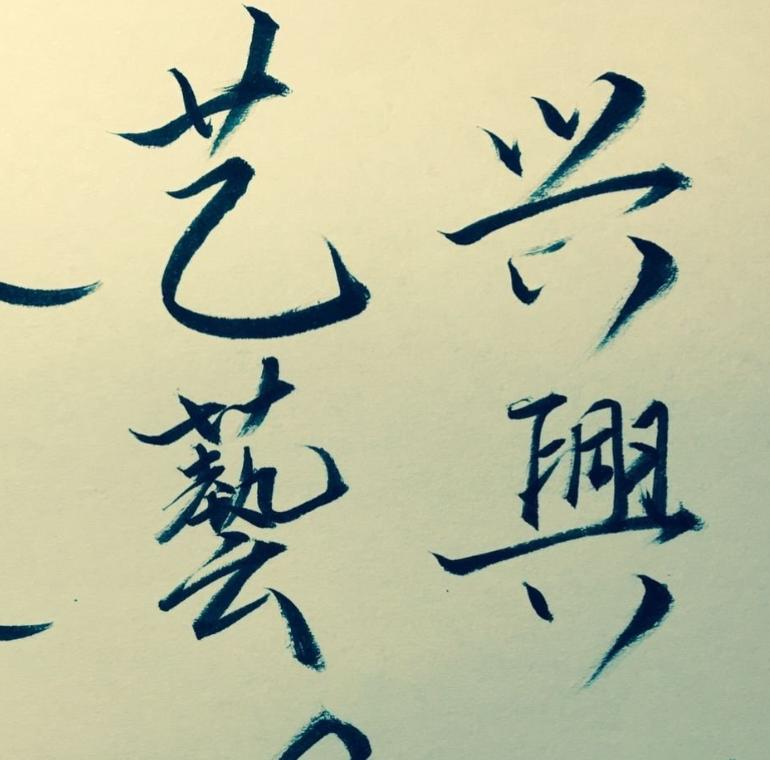 兴興
艺藝